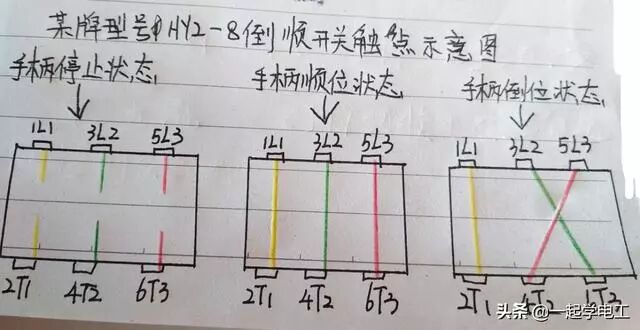 某牌型号HY2-8倒顺开关触点示意图
手柄停止状态 手柄顺位状态 手柄倒位状态
1L1 3L2 5L3 1L1 3L2 5L3 1L1 3L2 5L3
2T1 4T2 6T3 2T1 4T2 6T3 2T1 4T2
头条 @一起学电工